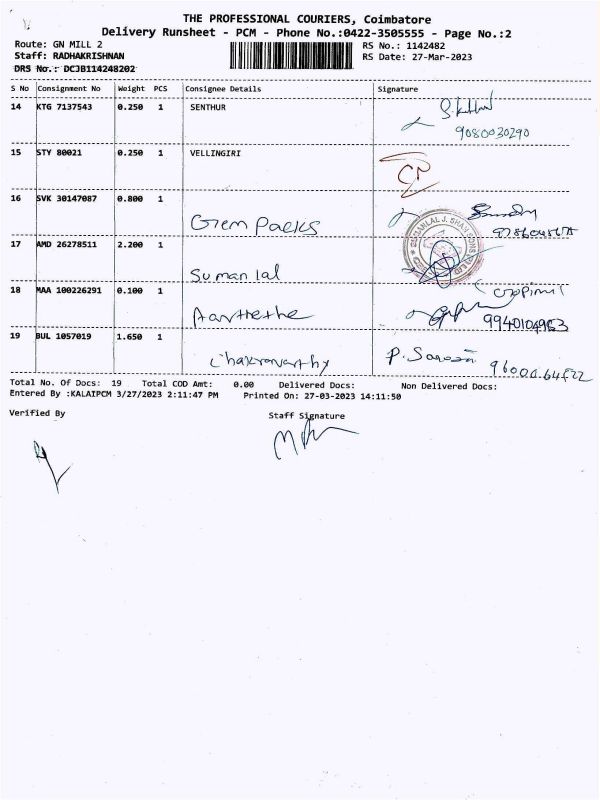 THE PROFESSIONAL COURIERS, Coimbatore
Delivery Runsheet - PCM - Phone No.:0422-3505555 - Page No.:2
Route: GN MILL 2 RS No.: 1142482
Staff: RADHAKRISHNAN RS Date: 27-Mar-2023
DRS No.: DCJB114248202
S No Consignment No Weight PCS Consignee Details Signature
14 KTG 7137543 0.250 1 SENTHUR
9080030290
15 STY 80021 0.250 1 VELLINGIRI
16 SVK 30147087 0.800 1
Gem Packs
17 AMD 26278511 2.200 1
Sumanlal
18 MAA 100226291 0.100 1
Aarthethe 9940104963
19 BUL 1057019 1.650 1
Chakravarthy
Total No. Of Docs: 19 Total COD Amt: 0.00 Delivered Docs: Non Delivered Docs:
Entered By :KALAIPCM 3/27/2023 2:11:47 PM Printed On: 27-03-2023 14:11:50
Verified By Staff Signature